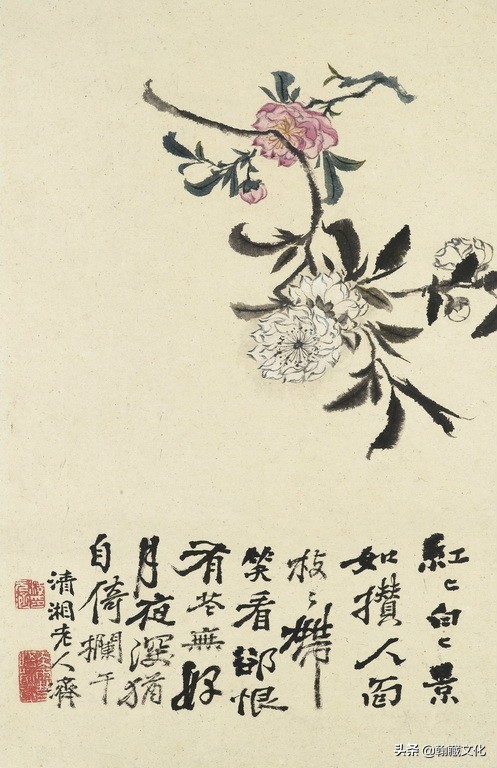 紅〻白〻景
如攢人面
枝〻帶
笑看郤恨
有花無好
月夜深猶
自倚欄干
清湘老人濟
头条 @翰藏文化